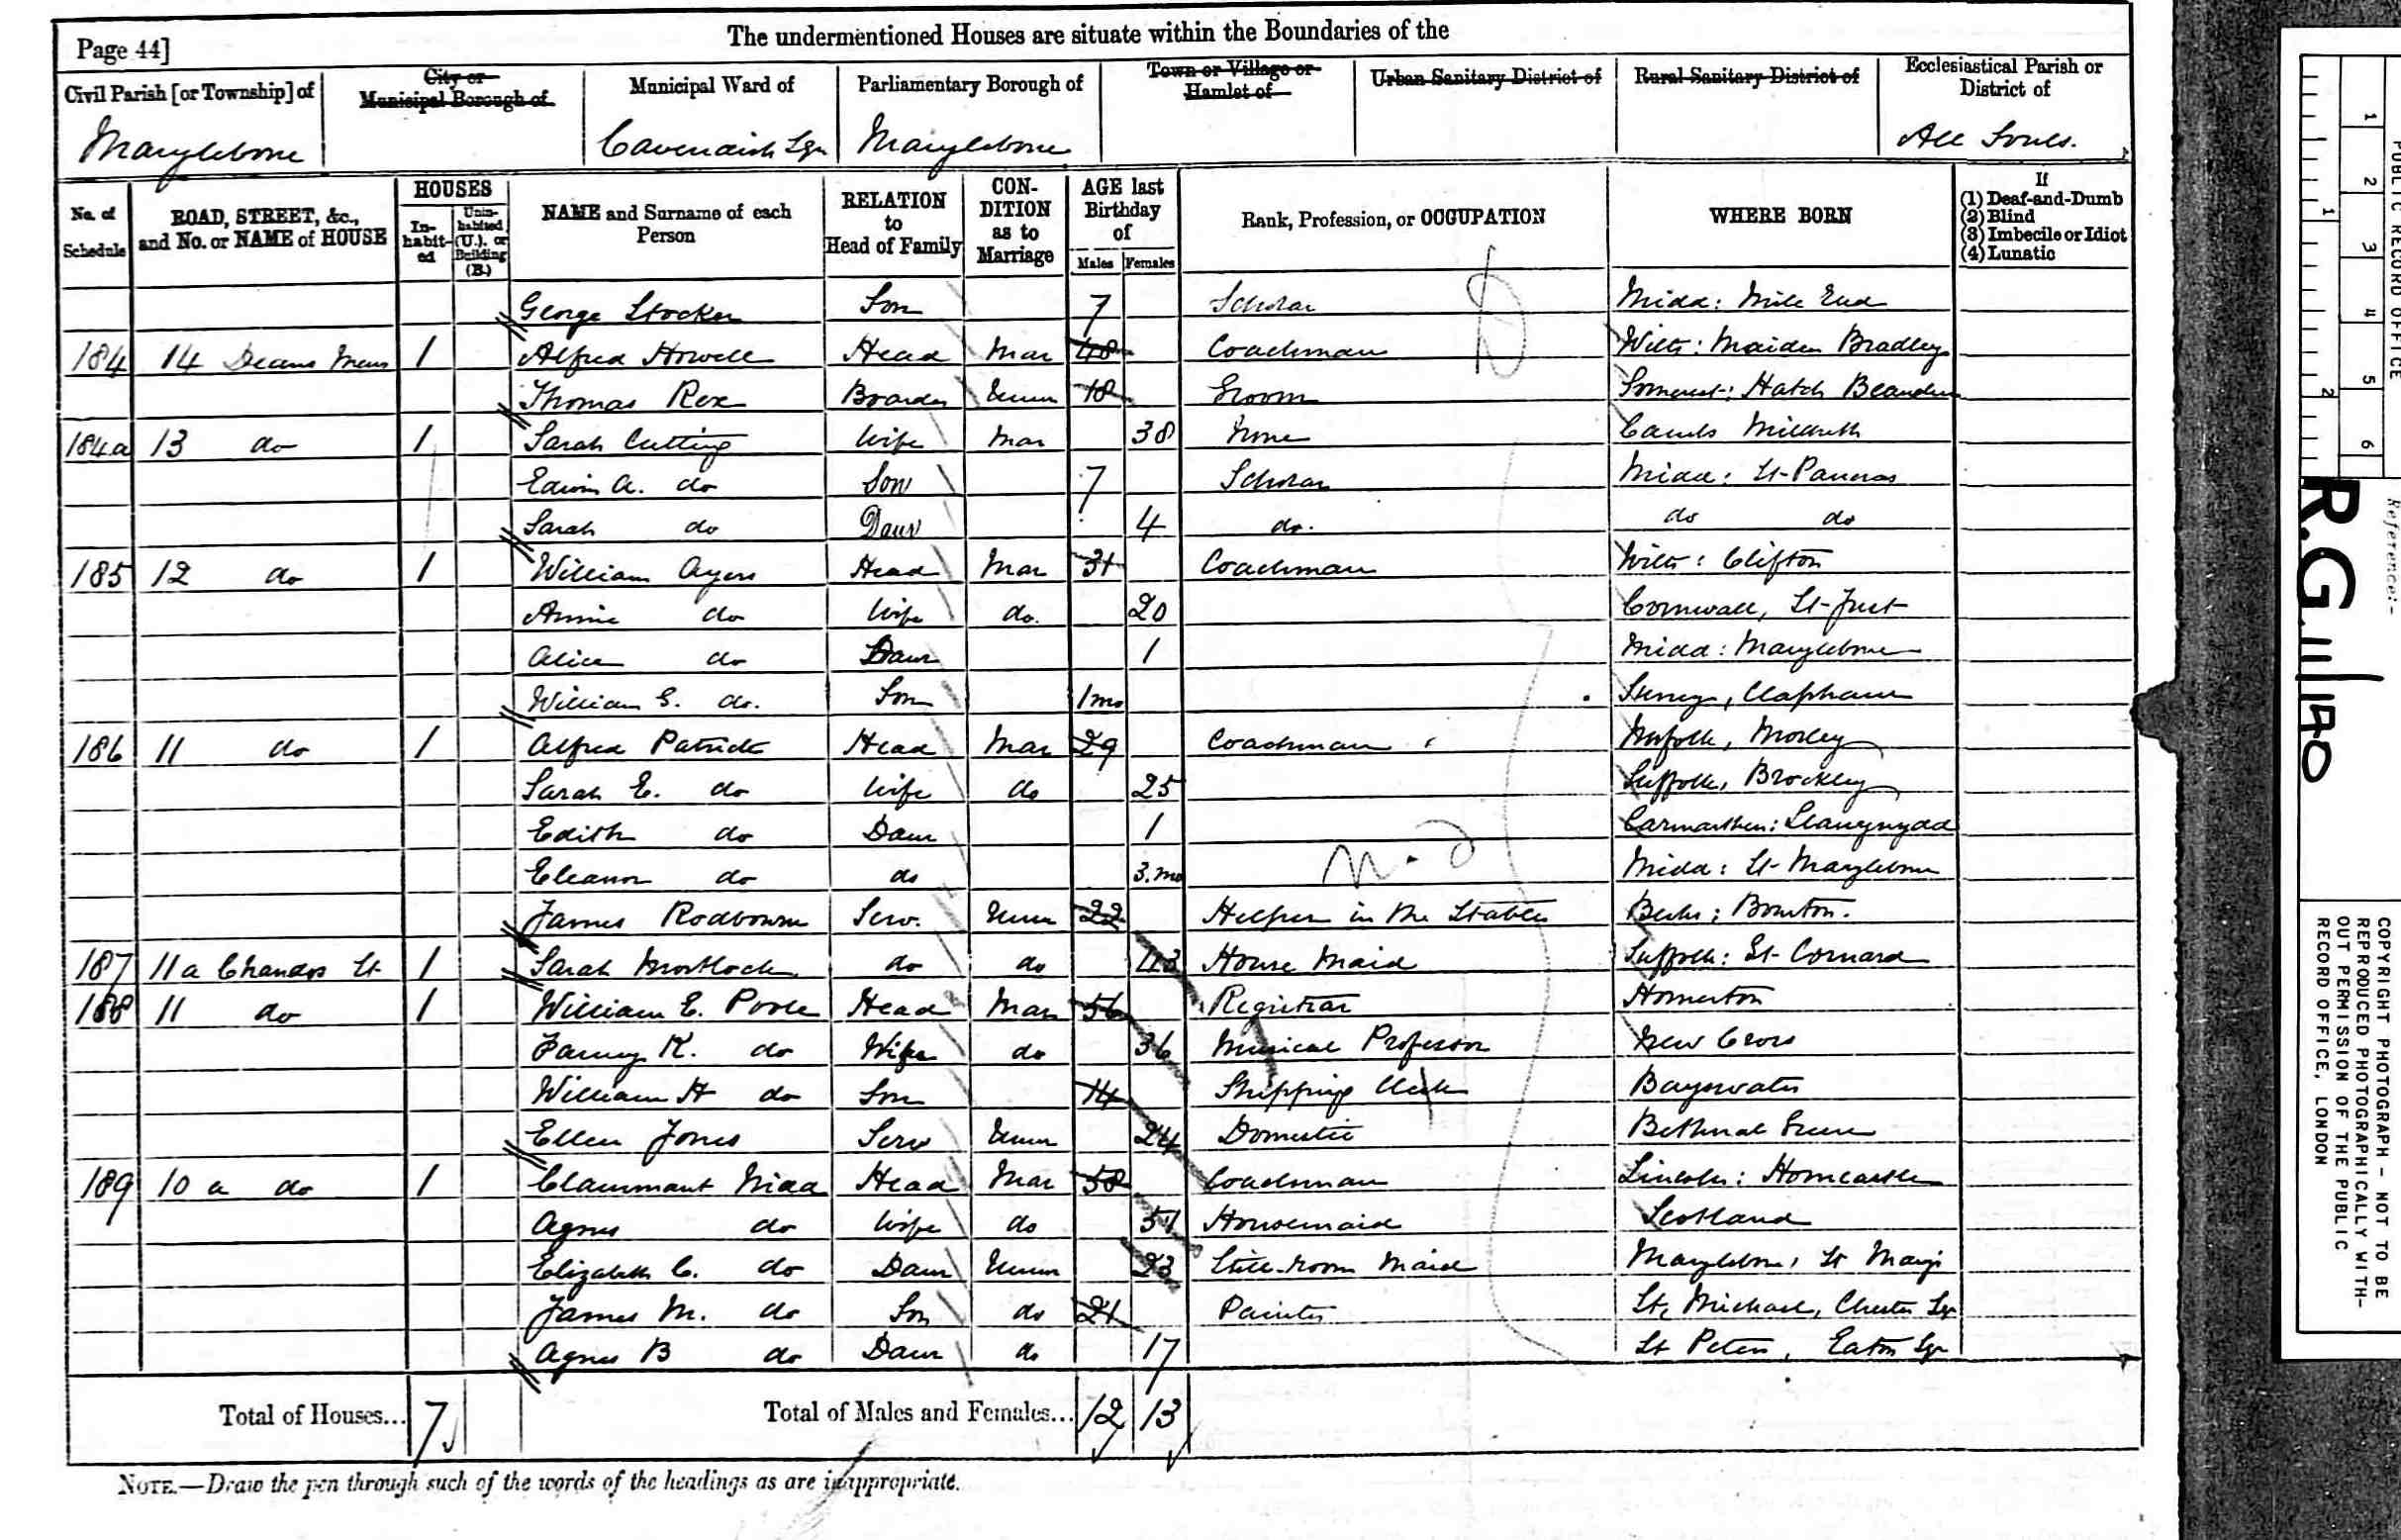 The undermentioned Houses are situate within the Boundaries of the
Page 44]
Civil Parish [or Township] of
City or Municipal Borough of
Municipal Ward of
Parliamentary Borough of
Town or Village or Hamlet of
Urban Sanitary District of
Rural Sanitary District of
Ecclesiastical Parish or District of
Marylebone Cavendish Sqr Marylebone All Souls.
No. of Schedule
ROAD, STREET, &c., and No. or NAME of HOUSE
HOUSES
Inhabited
Uninhabited (U.), or Building (B.)
NAME and Surname of each Person
RELATION to Head of Family
CONDITION as to Marriage
AGE last Birthday of
Males Females
Rank, Profession, or OCCUPATION
WHERE BORN
If
(1) Deaf-and-Dumb
(2) Blind
(3) Imbecile or Idiot
(4) Lunatic
George Stocker Son 7 Scholar Midd: Mile End
184 14 Deans Mews 1 Alfred Howell Head Mar 48 Coachman Wilts: Maiden Bradley
Thomas Rex Boarder Unm 18 Groom Somerset: Hatch Beauchm
184a 13 do 1 Sarah Cutting Wife Mar 38 None Cambs Meldreth
Edwin A. do Son 7 Scholar Midd: St Pancras
Sarah do Daur 4 do. do do
185 12 do 1 William Ayers Head Mar 31 Coachman Wilts: Clifton
Annie do Wife do. 20 Cornwall, St Just
Alice do Daur 1 Midd: Marylebone
William G. do. Son 1mo Surrey, Clapham
186 11 do 1 Alfred Patrick Head Mar 29 Coachman Norfolk, Morley
Sarah E. do Wife do 25 Suffolk, Brockley
Edith do Daur 1 Carmarthen: Llanegwad
Eleanor do do 3. mo Midd: St Marylebone
James Rodbourn Serv. Unm 22 Helper in the Stables Berks: Bourton.
187 11a Chandos St 1 Sarah Mortlock do do 43 House Maid Suffolk: Gt Cornard
188 11 do 1 William E. Poole Head Mar 56 Registrar Homerton
Fanny K. do Wife do 36 Musical Professor New Cross
William H do Son 14 Shipping Clerk Bayswater
Ellen Jones Serv Unm 24 Domestic Bethnal Green
189 10 a do 1 Nidd Head Mar 58 Coachman Lincoln: Horncastle
Agnes do Wife do 51 Housemaid Scotland
Elizabeth C. do Daur Unm 23 Still-room Maid Marylebone, St Mary's
James M. do Son do 21 Painter St Michael, Chester Sqr
Agnes B do Daur do 17 St Peters, Eaton Sqr
Total of Houses... 7 Total of Males and Females... 12 13
NOTE.—Draw the pen through such of the words of the headings as are inappropriate.
PUBLIC RECORD OFFICE
1 2 3 4 5 6
1 2
Reference:-
R.G. 11/140
COPYRIGHT PHOTOGRAPH - NOT TO BE
REPRODUCED PHOTOGRAPHICALLY WITH-
OUT PERMISSION OF THE PUBLIC
RECORD OFFICE, LONDON